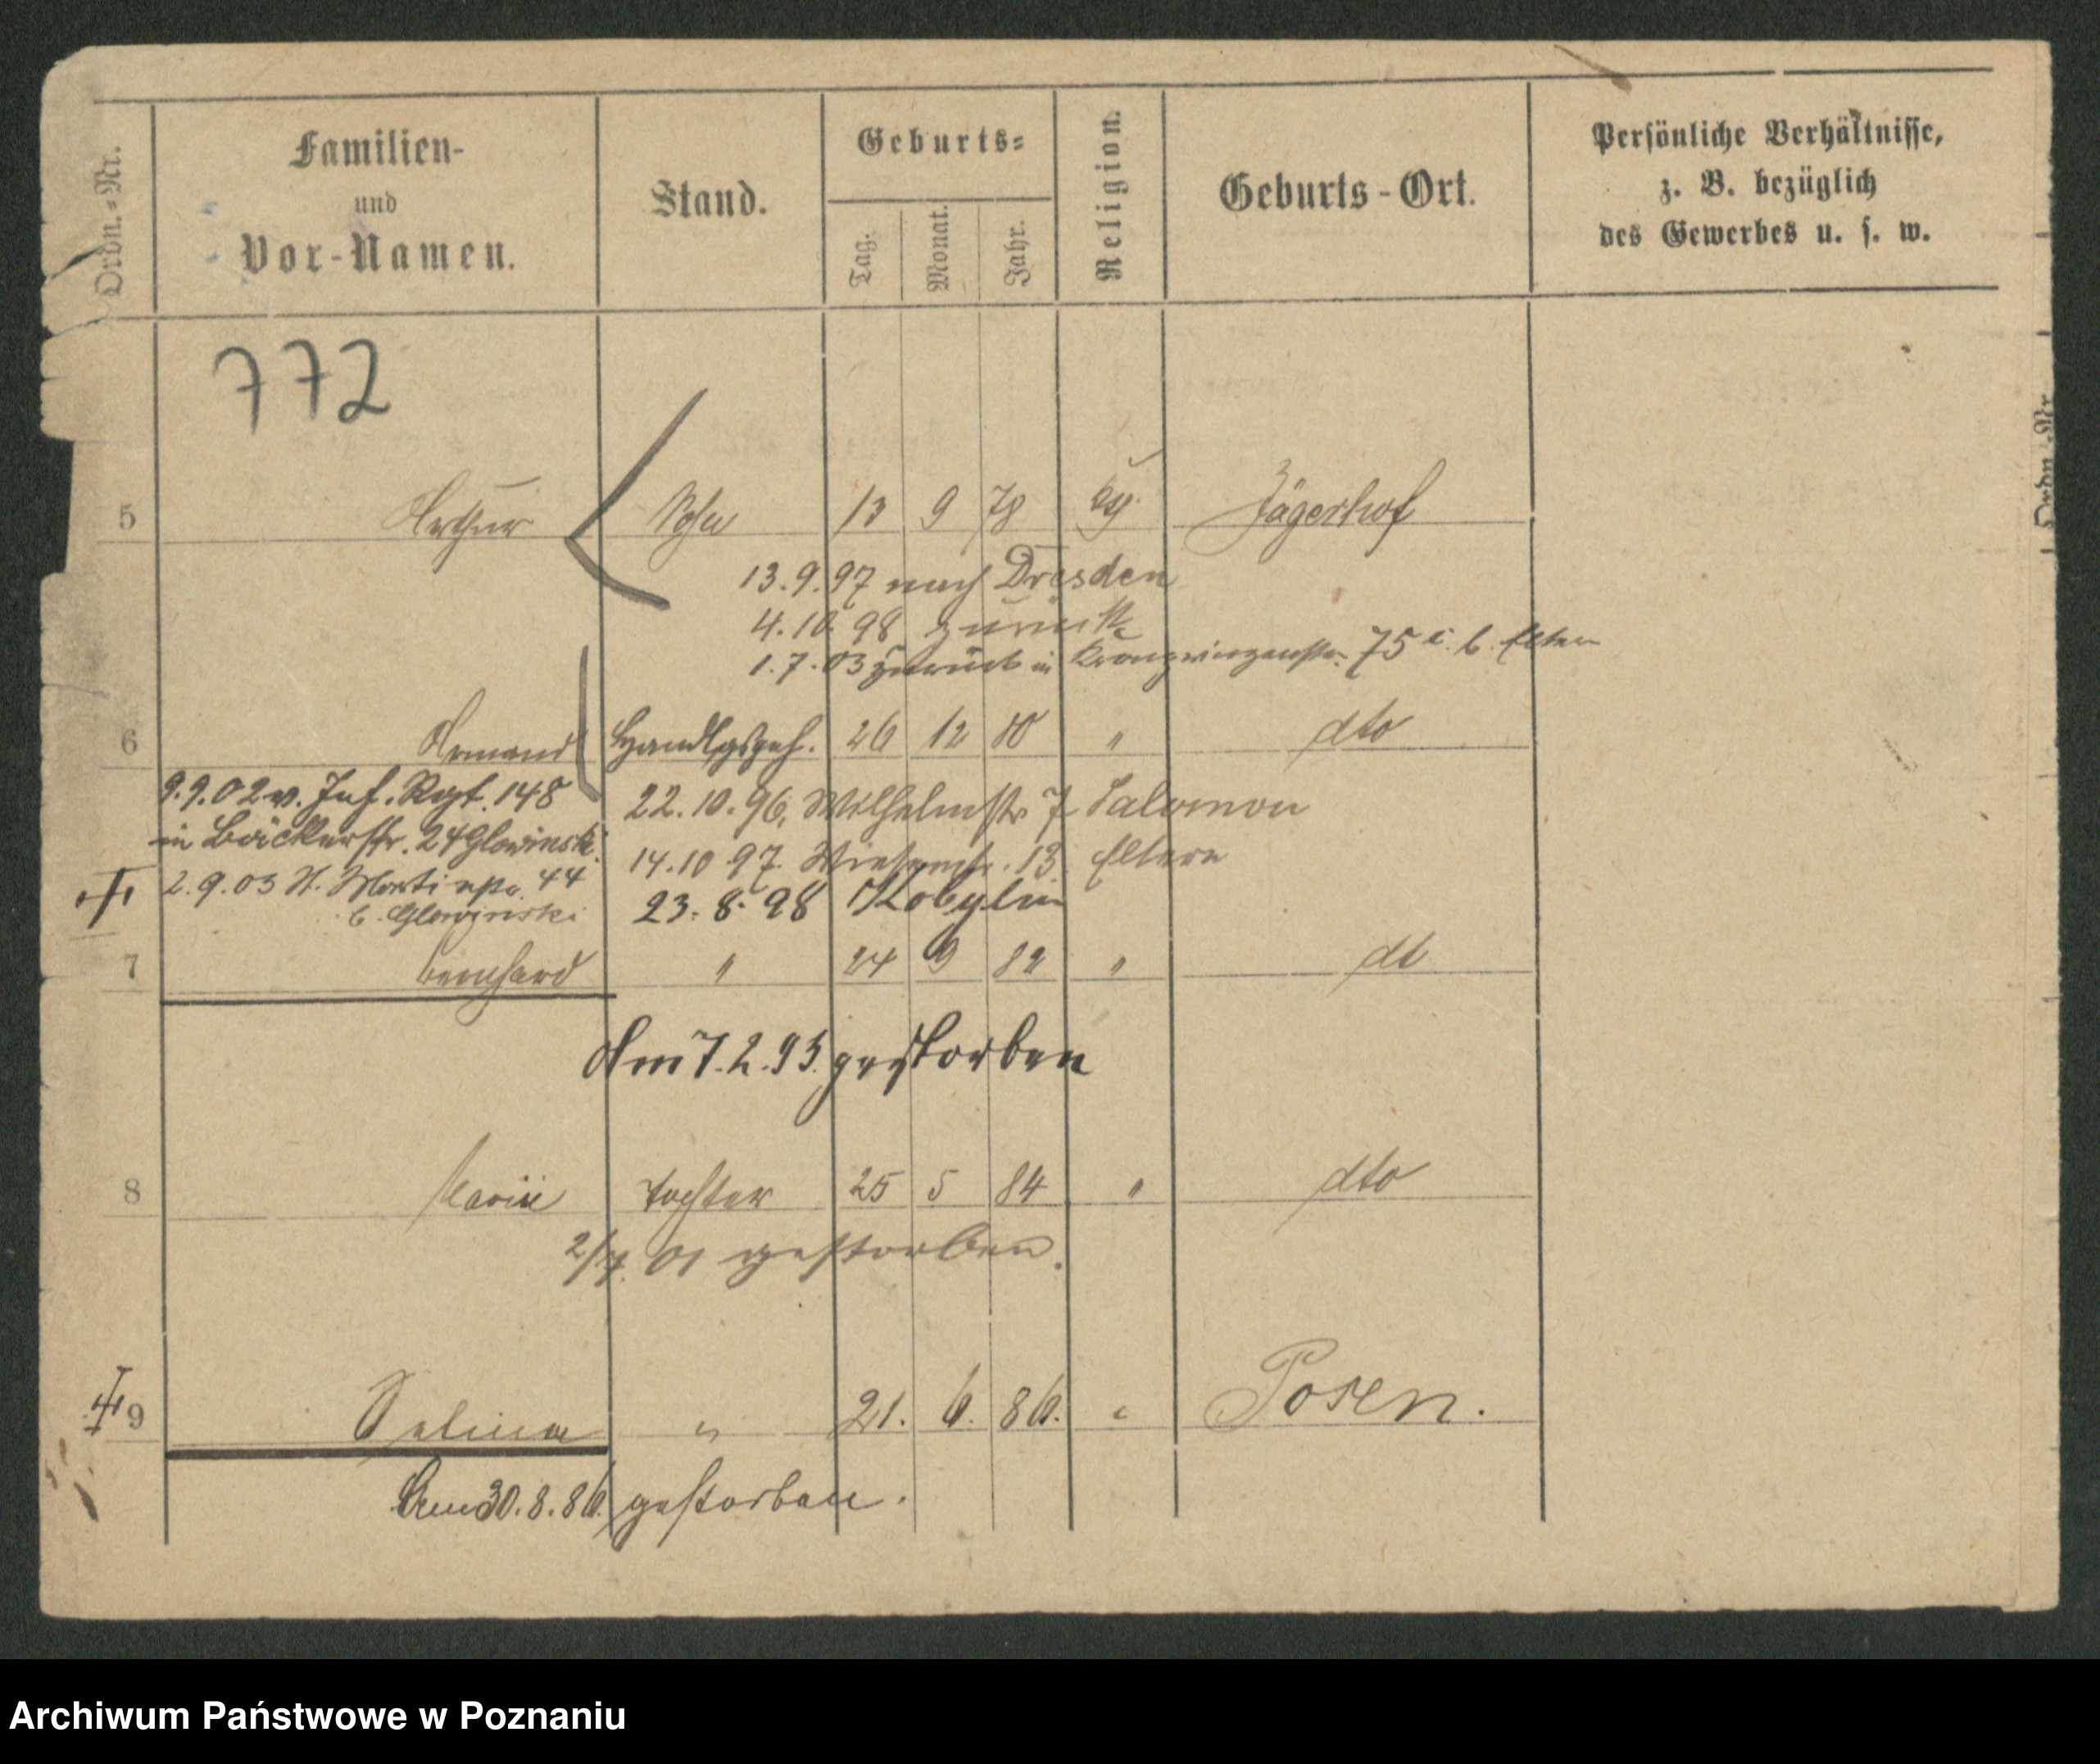 Ordn.-Nr.
Familien-
und
Vor-Namen.
Stand.
Geburts-
Tag.
Monat.
Jahr.
Religion.
Geburts-Ort.
Persönliche Verhältnisse,
z. B. bezüglich
des Gewerbes u. s. w.
772
5 Arthur Sohn 13 9 78 Jägerhof
13.9.97 nach Dresden
4.10.98 zurück
1.7.03 zurück in Kronprinzenstr. 75 b. Eltern
6 Armand Handlgsgeh. 26 12 80 " dto
9.9.02 v. Inf. Rgt. 148
in Bäckerstr. 24 Glowinski
2.9.03 St. Martinstr. 44
b. Glowinski
22.10.96, Wilhelmstr 7 Salomon
14.10 97. Wiesenstr. 13. Eltern
23.8.98 Kobylin
7 Bernhard " 24 9 82 " dt
Am 7.2.93. gestorben
8 Marie Tochter 25 5 84 " dto
2/7. 01 gestorben.
9 Selma " 21. 6. 86. " Posen.
Am 30.8.86. gestorben.
Ordn.-Nr.
Archiwum Państwowe w Poznaniu